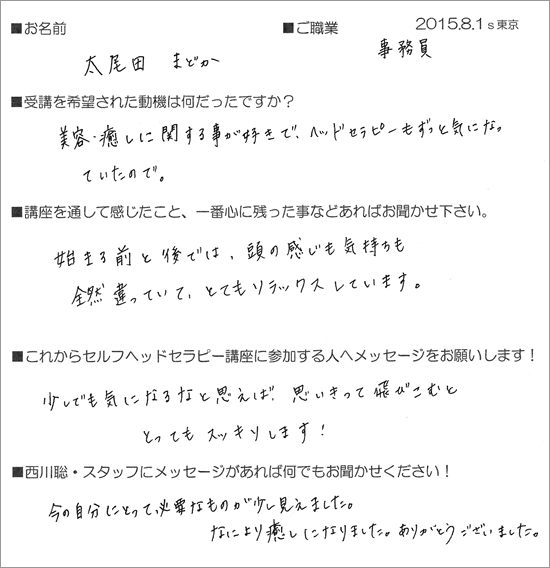 ■お名前 ■ご職業 2015.8.1s東京
太尾田 まどか 事務員
■受講を希望された動機は何だったですか?
美容・癒しに関する事が好きで、ヘッドセラピーもずっと気になっ
ていたので。
■講座を通して感じたこと、一番心に残った事などあればお聞かせ下さい。
始まる前と後では、頭の感じも気持ちも
全然違っていて、とてもリラックスしています。
■これからセルフヘッドセラピー講座に参加する人へメッセージをお願いします!
少しでも気になるなと思えば、思いきって飛びこむと
とってもスッキリします!
■西川聡・スタッフにメッセージがあれば何でもお聞かせください!
今の自分にとって、必要なものが少し見えました。
なにより癒しになりました。ありがとうございました。